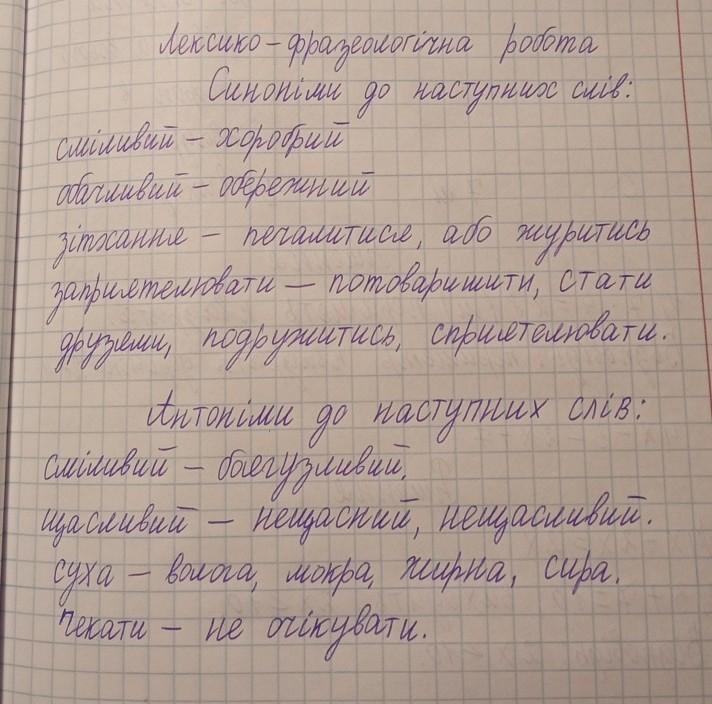 Лексико-фразеологічна робота
Синоніми до наступних слів:
сміливий – хоробрий
обачливий – обережний
зітхання – печалитися, або журитись
заприятелювати — потоваришити, стати
друзями, подружитись, сприятелювати.
Антоніми до наступних слів:
сміливий – боягузливий.
щасливий – нещасний, нещасливий.
суха – волога, мокра, жирна, сира.
Чекати – не очікувати.